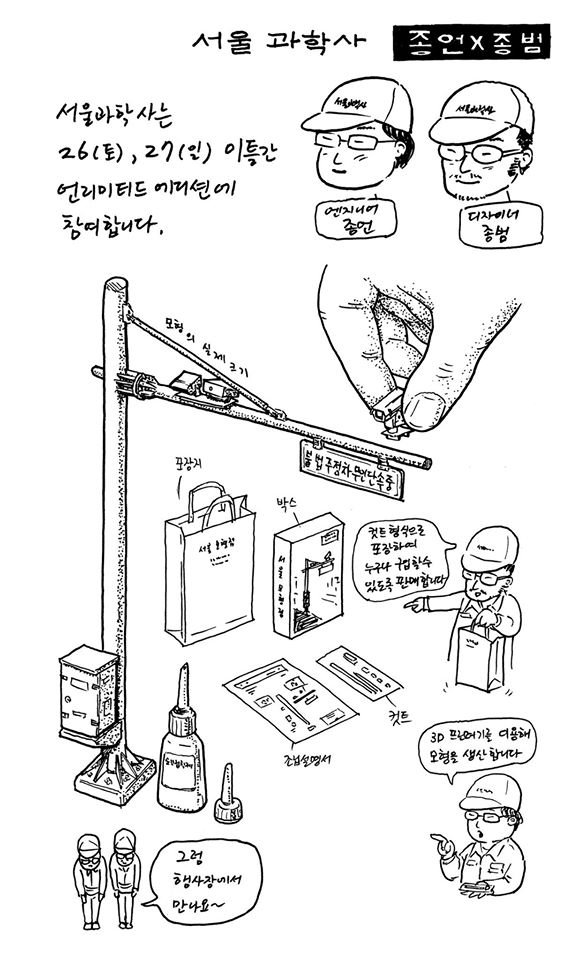 서울 과학사
종언X종범
서울과학사는
26(토), 27(일) 이틀간
언리미티드 에디션에
참여합니다.
서울과학사
서울과학사
엔지니어
종언
디자이너
종범
모형의 실제크기
불법주정차무인단속중
포장지
서울 모형점
박스
서울모형점
컷트형식으로
포장하여
누구나 구입할수
있도록 판매합니다
조립설명서
컷트
3D 프린터기를 이용해
모형을 생산합니다
그럼
행사장에서
만나요~